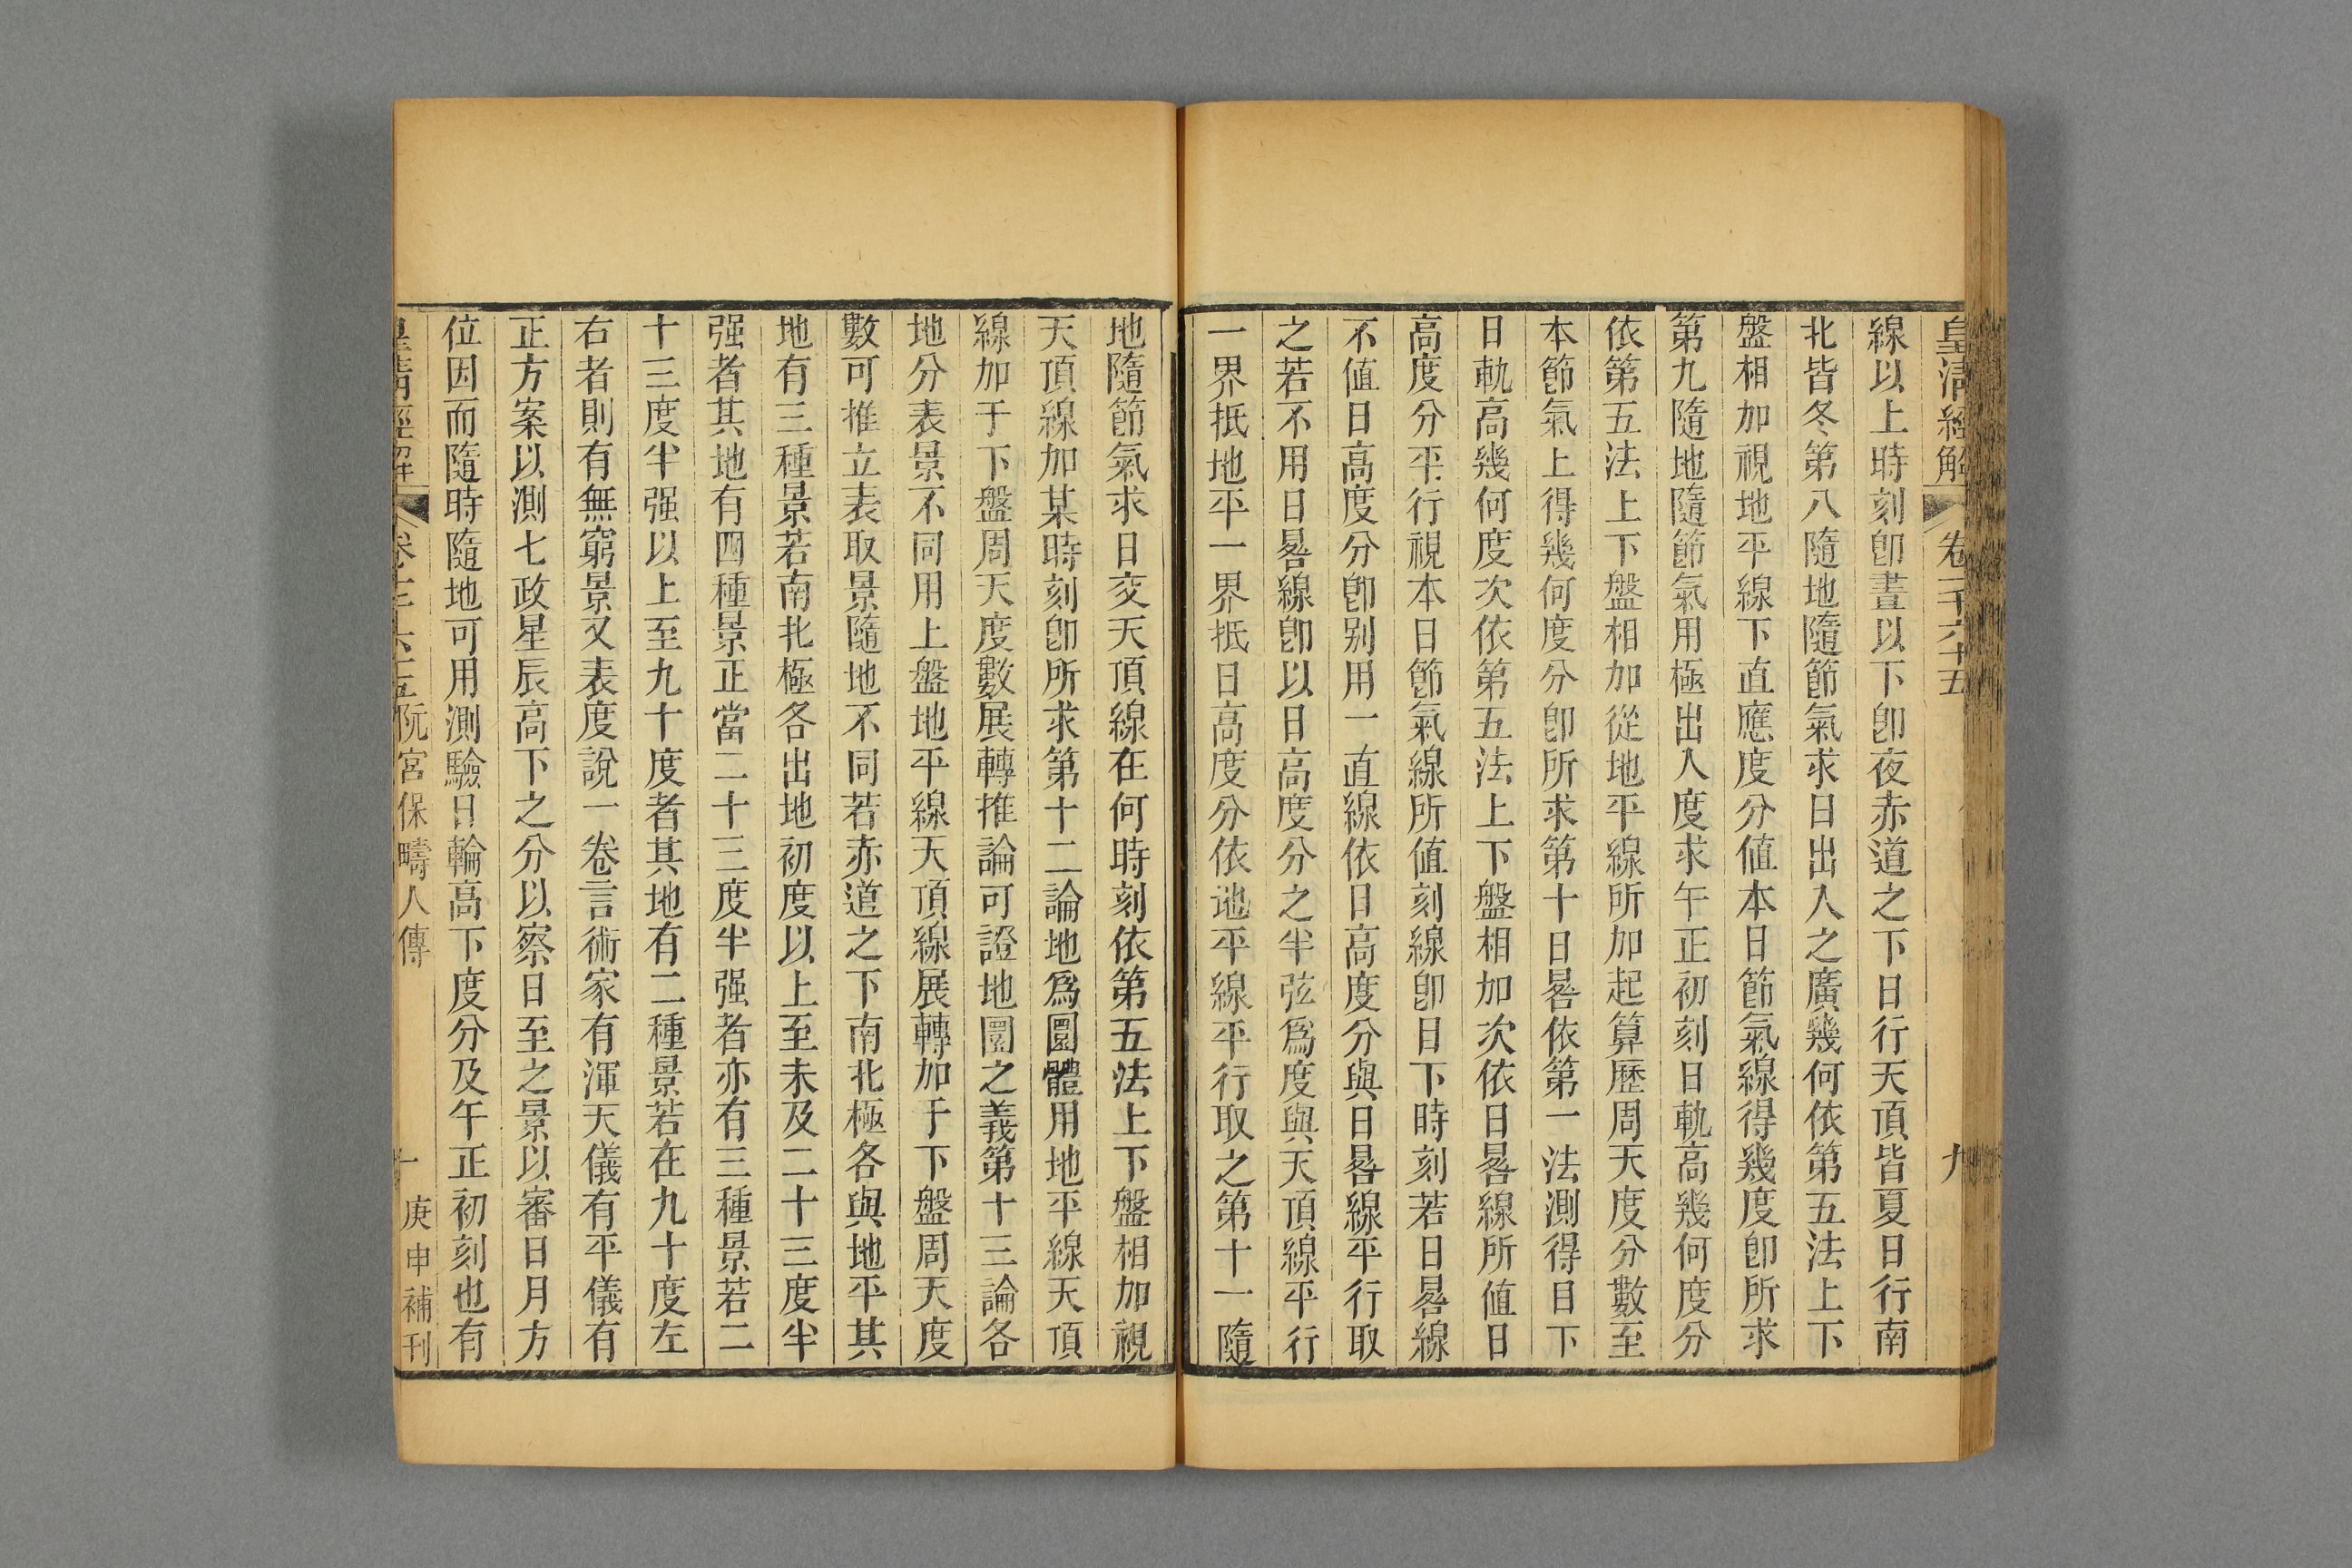 皇清經解 卷一千六十五 九
線以上時刻卽晝以下卽夜赤道之下日行天頂皆夏日行南
北皆冬第八隨地隨節氣求日出入之廣幾何依第五法上下
盤相加視地平線下直應度分値本日節氣線得幾度卽所求
第九隨地隨節氣用極出入度求午正初刻日軌高幾何度分
依第五法上下盤相加從地平線所加起算歷周天度分數至
本節氣上得幾何度分卽所求第十日晷依第一法測得目下
日軌高幾何度次依第五法上下盤相加次依日晷線所値日
高度分平行視本日節氣線所値刻線卽目下時刻若日晷線
不値日高度分卽別用一直線依日高度分與日晷線平行取
之若不用日晷線卽以日高度分之半弦爲度與天頂線平行
一界抵地平一界抵日高度分依地平線平行取之第十一隨
地隨節氣求日交天頂線在何時刻依第五法上下盤相加視
天頂線加某時刻卽所求第十二論地爲圜體用地平線天頂
線加于下盤周天度數展轉推論可證地圜之義第十三論各
地分表景不同用上盤地平線天頂線展轉加于下盤周天度
數可推立表取景隨地不同若赤道之下南北極各與地平其
地有三種景若南北極各出地初度以上至未及二十三度半
强者其地有四種景正當二十三度半强者亦有三種景若二
十三度半强以上至九十度者其地有二種景若在九十度左
右者則有無窮景又表度說一卷言術家有渾天儀有平儀有
正方案以測七政星辰高下之分以察日至之景以審日月方
位因而隨時隨地可用測驗日輪高下度分及午正初刻也有
皇清經解 阮宮保疇人傳 庚申補刊